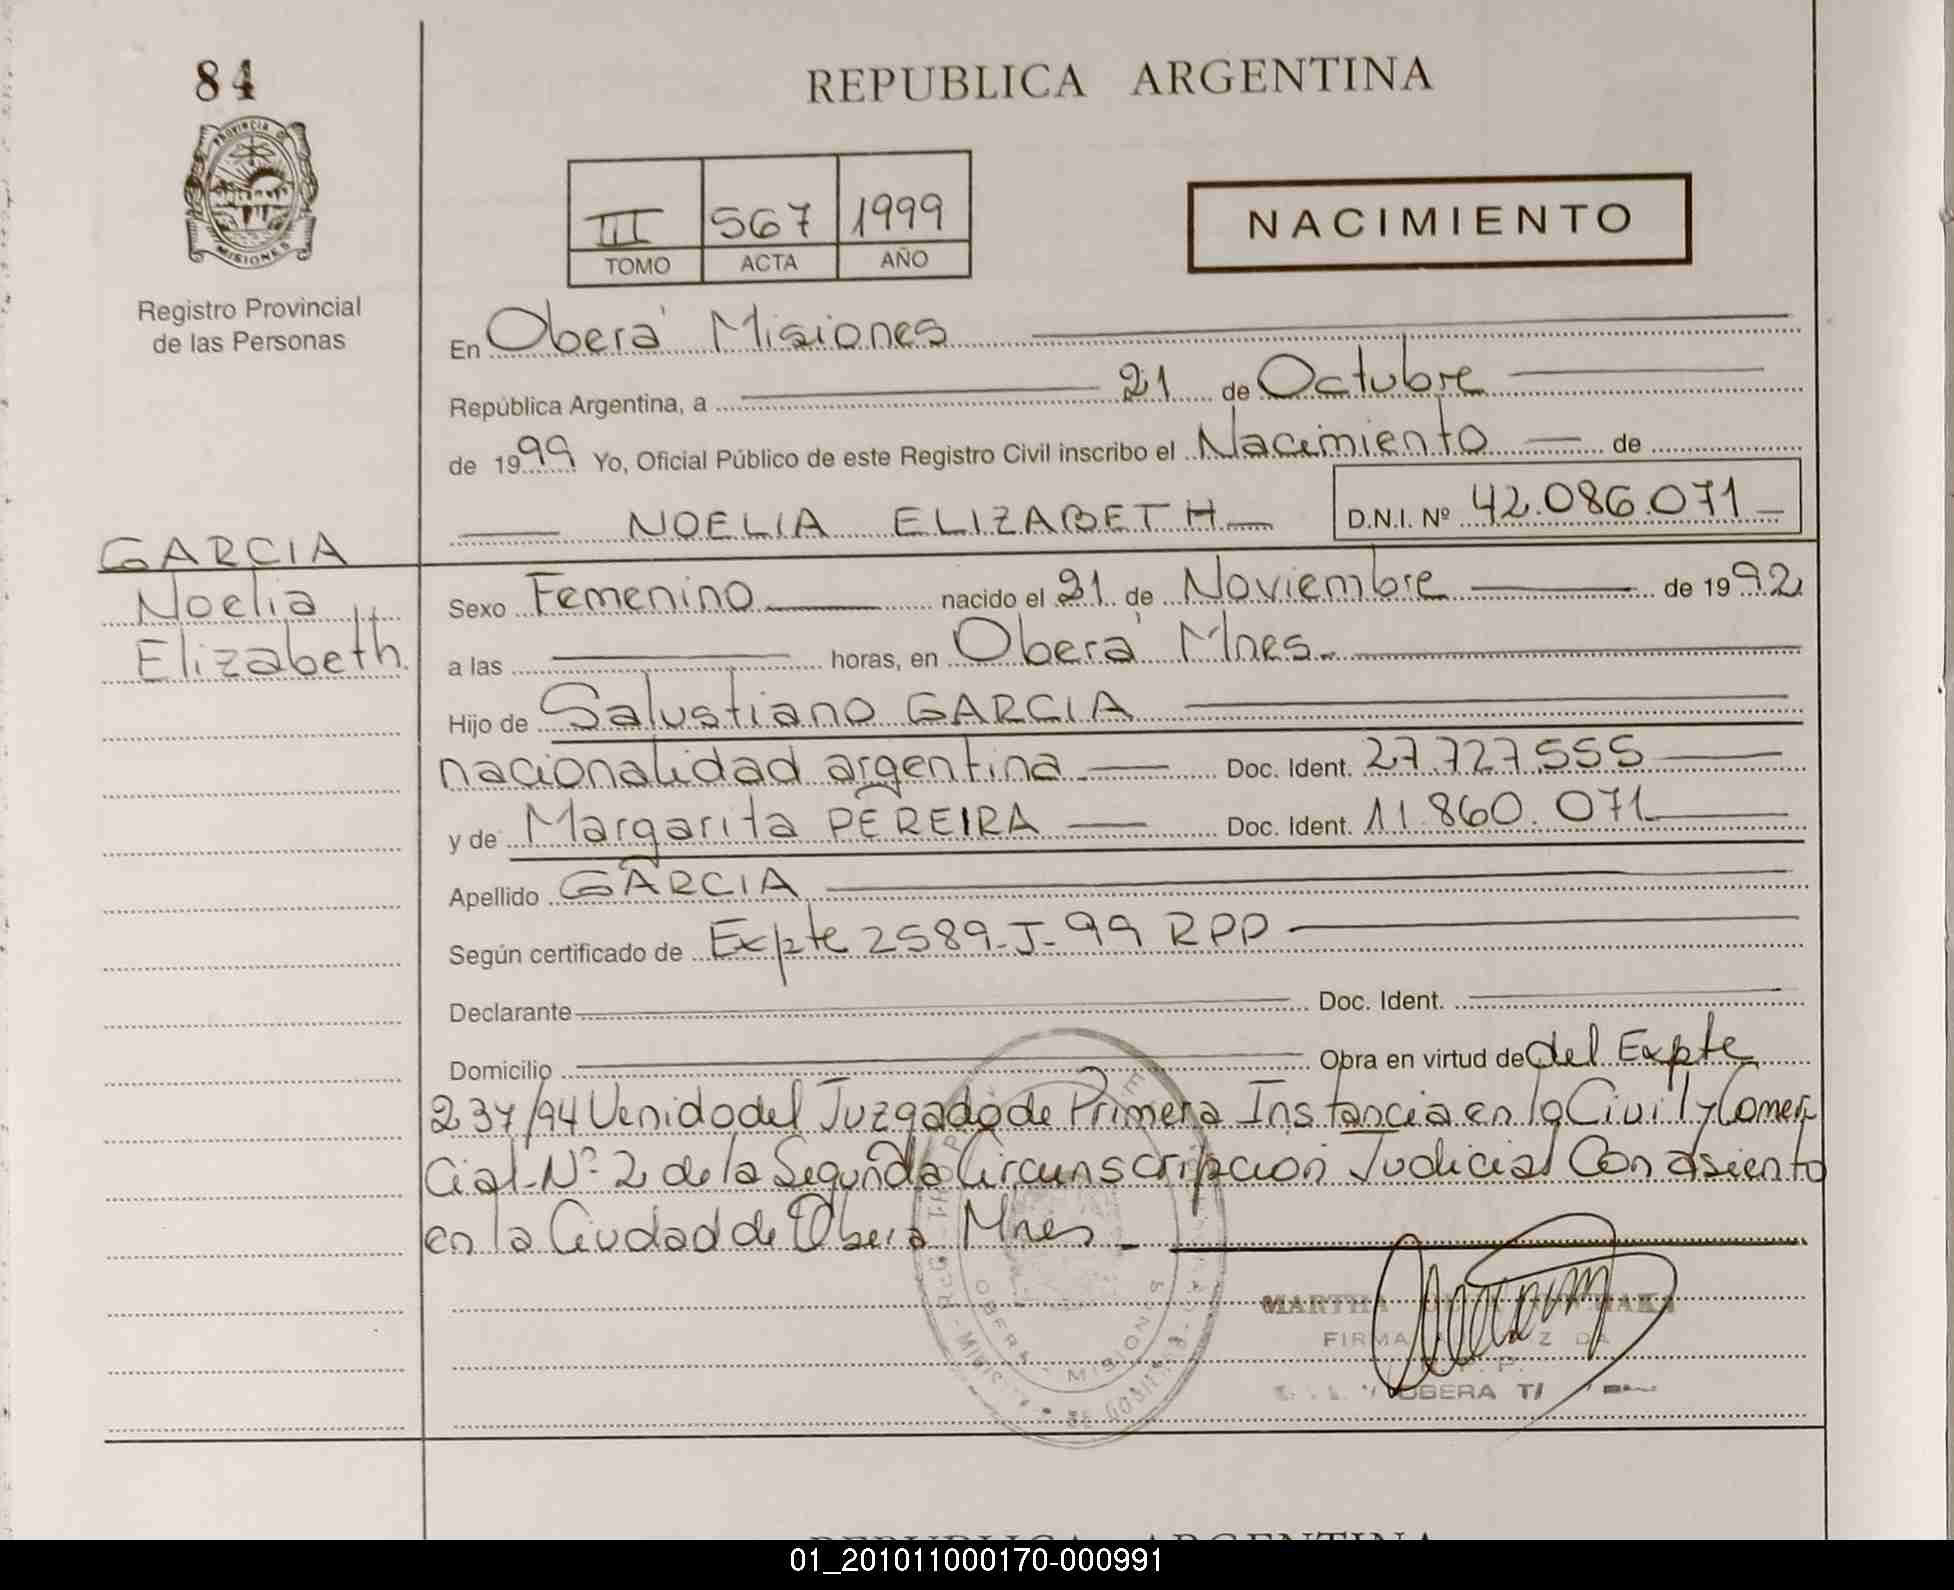 84
REPUBLICA ARGENTINA
PROVINCIA D
MISIONES
III 567 1999
TOMO ACTA AÑO
NACIMIENTO
Registro Provincial
de las Personas
En Oberá Misiones
República Argentina, a 21 de Octubre
de 1999 Yo, Oficial Público de este Registro Civil inscribo el Nacimiento de
NOELIA ELIZABETH D.N.I. Nº 42.086.071
GARCIA
Noelia
Elizabeth.
Sexo Femenino nacido el 21 de Noviembre de 1992
a las horas, en Oberá Mnes.
Hijo de Salustiano GARCIA
nacionalidad argentina Doc. Ident. 27.727.555
y de Margarita PEREIRA Doc. Ident. 11.860.071
Apellido GARCIA
Según certificado de Expte 2589-J-99 RPP
Declarante Doc. Ident.
Domicilio Obra en virtud de del Expte
237/94 Venido del Juzgado de Primera Instancia en lo Civil y Comer
cial-Nº 2 de la Segunda Circunscripcion Judicial Con asiento
en la Ciudad de Obera Mnes
OBERA MISIONES
MARTHA
FIRMA
OBERA
REPUBLICA ARGENTINA
01_201011000170-000991